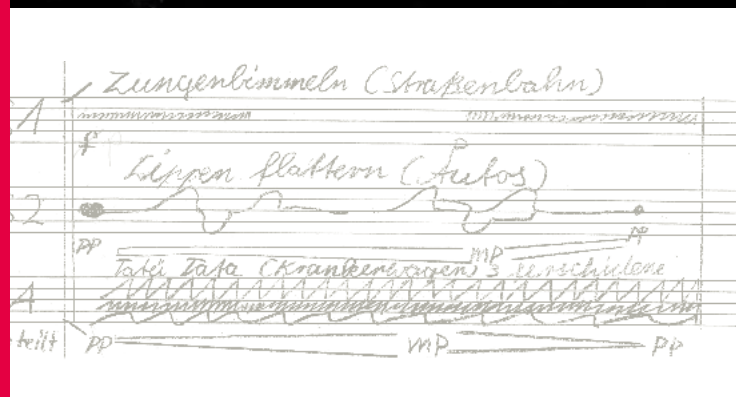 Zungenbimmeln (Straßenbahn)
1
f p
Lippen flattern (Autos)
2
pp mp p
Tatü Tata (Krankenwagen) 3 verschiedene
A
teilt pp mp pp